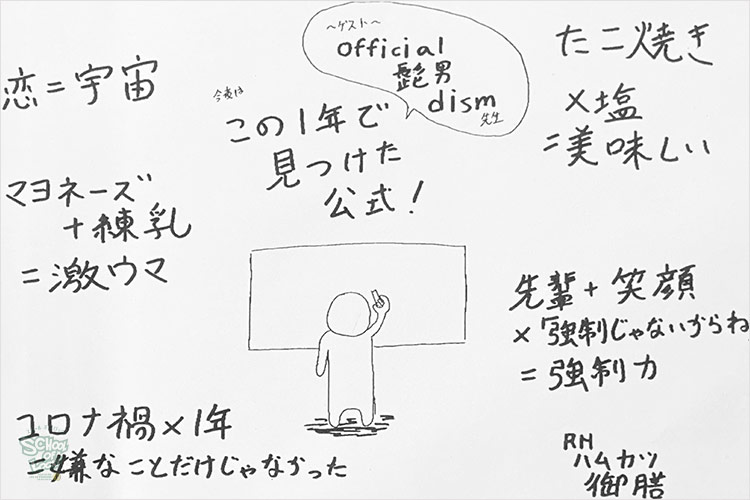 ~ゲスト~
official
髭男
dism
先生
今夜は
この1年で
見つけた
公式!
恋=宇宙
マヨネーズ
+練乳
=激ウマ
たこ焼き
×塩
=美味しい
先輩+笑顔
×「強制じゃないからね
=強制力
コロナ禍×1年
=嫌なことだけじゃなかった
RN
ハムカツ
御膳
SCHOOL
OF